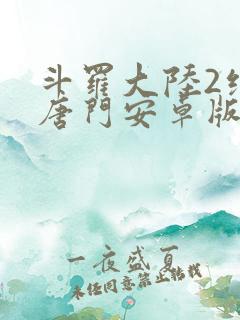 斗羅大陸2
唐門安卓版
一夜盛夏
未经同意禁止转载